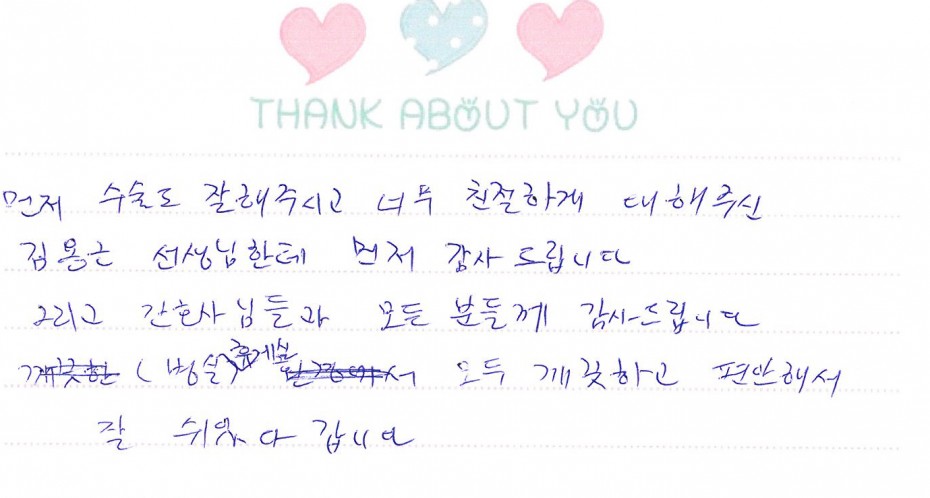 THANK ABOUT YOU
먼저 수술도 잘해주시고 너무 친절하게 대해주신
김용근 선생님한테 먼저 감사 드립니다
그리고 간호사님들과 모든 분들께 감사드립니다
깨끗한 (병실) 휴게실 모두 깨끗하고 편안해서
잘 쉬었다 갑니다